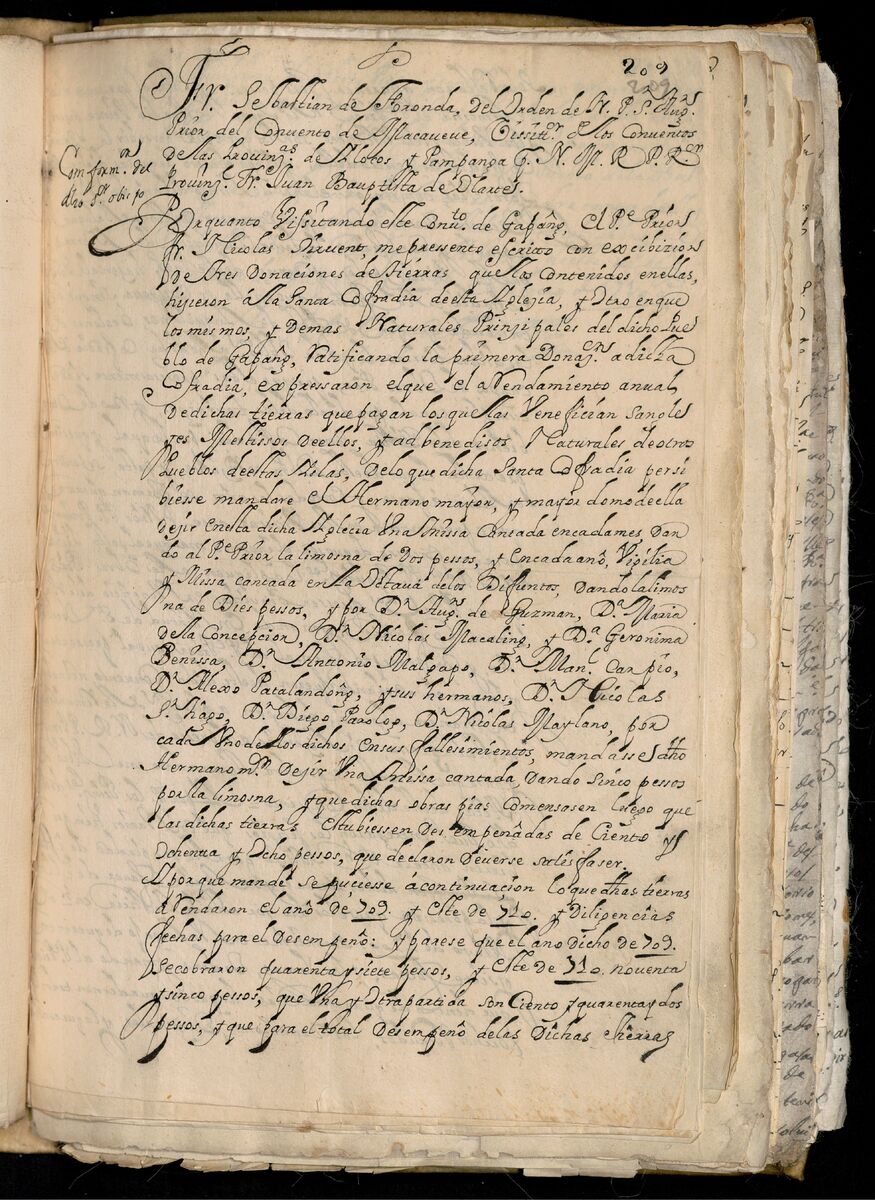 209
209
Fr. Sebastian de Foronda, del Orden de N. P. S. Aug.s
Prior del Convento de Macaveve, Vissit.or de los Conventos
de las Provinç.as de Ylocos y Pampanga P. N. M. R. P. R.or
Provinç.l Fr. Juan Bauptista de Olartes.
Conform.on del
dho S.r obispo
Porquanto Vissitando este Conv.to de Gapañg, el P.e Prior
fr. Nicolas Siruent, me pressento escritto con excibizion
de tres Donaciones de tierras, que llas Contenidos enellas,
hisieron á lla Santa Cofradia de esta Yglesia, y Otro enque
los mismos, y demas Naturales Prinsipales del dicho Pue
blo de Gapañg, Ratificando la primera Donaç.on a dicha
Cofradia, expressaron el que el aRendamiento anual
de dichas tierras que pagan los que llas Venefician Sangle
yes Mestissos de ellos, y adbenedisos Naturales de otros
Pueblos de estas Yslas, de lo que dicha Santa Cofradia persi
biesse mandare el Hermano mayor, y mayordomo de ella
desir en esta dicha Yglecia Una Missa Cantada en cada mes, dan
do al P.e Prior la limosna de Dos pessos, y en cada anô, Vigilia
y Missa cantada en lla Octava de los Difuntos, dando la limos
na de Dies pessos, y por D.n Aug.s de Guzman, D.a Maria
de lla Concepcion, D.n Nicolas Macaling, y D.a Geronima
Benissa, D.n Antonio Malgapo, D.n Man.l Carpio,
D.n Alexo Patalandong, y sus hermanos, D.n Nicolas
S.n tiago, D.n Diego Parolog, D.n Nicolas Maylano, por
cada Uno de llos dichos en sus fallesimientos, mandasse el dho
Hermano m.or Desir Una Missa cantada, Dando Sinco pessos
por lla limosna, y que dichas obras pias Comensasen luego que
las dichas tierras Estubiessen Desempenâdas de Ciento
Ochenta y Ocho pessos, que declaron Deverse satisfaser. Y
Aporque mandê se pusiesse á continuacion lo que dhas tierras
aRendaron el anô de 709. y Este de 710. y diligencias
fechas para el Desempenô: y parese que el ano Dicho de 709.
Se cobraron quarenta y siete pessos, y Este de 710. noventa
y sinco pessos, que Una y Otra partida son Ciento y quarenta y dos
pessos, y que para el total Desempenô de las Dichas tierras